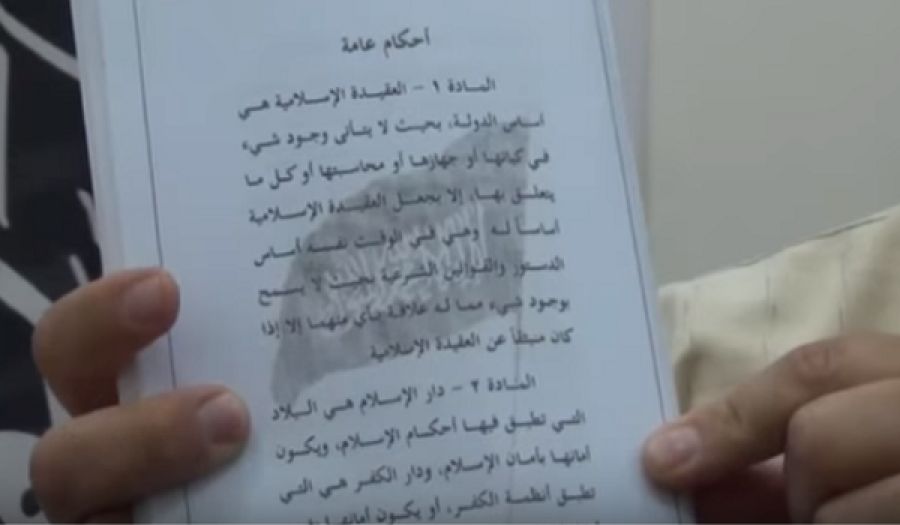 أحكام عامة
المادة ١ - العقيدة الإسلامية هي
أساس الدولة، بحيث لا يتأتى وجود شيء
في كيانها أو جهازها أو محاسبتها أو كل ما
يتعلق بها، إلا بجعل العقيدة الإسلامية
أساساً له وهي في الوقت نفسه أساس
الدستور والقوانين الشرعية بحيث لا يسمح
بوجود شيء مما له علاقة بأي منهما إلا إذا
كان منبثقاً عن العقيدة الإسلامية
المادة ٢ - دار الإسلام هي البلاد
التي تطبق فيها أحكام الإسلام، ويكون
أمانها بأمان الإسلام، ودار الكفر هي التي
تطبق أنظمة الكفر، أو يكون أمانها